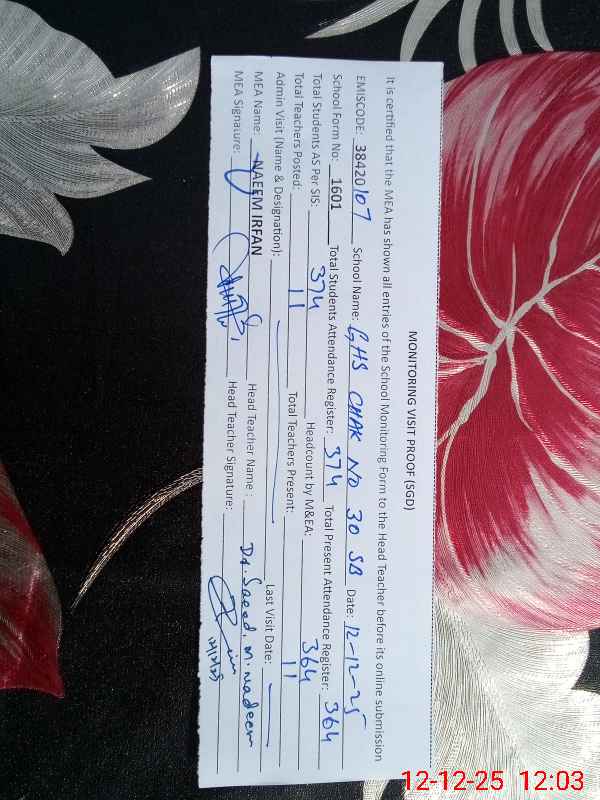 MONITORING VISIT PROOF (SGD)
It is certified that the MEA has shown all entries of the School Monitoring Form to the Head Teacher before its online submission
EMISCODE: 38420107 School Name: GHS CHAK NO 30 SB Date: 12-12-25
School Form No: 1601 Total Students Attendance Register: 374 Total Present Attendance Register: 364
Total Students AS Per SIS: 374 Headcount by M&EA: 364
Total Teachers Posted: 11 Total Teachers Present: 11
Admin Visit (Name & Designation): Last Visit Date:
MEA Name: NAEEM IRFAN Head Teacher Name : Dr. Saeed. M. Nadeem
MEA Signature: Head Teacher Signature:
12-12-25 12:03